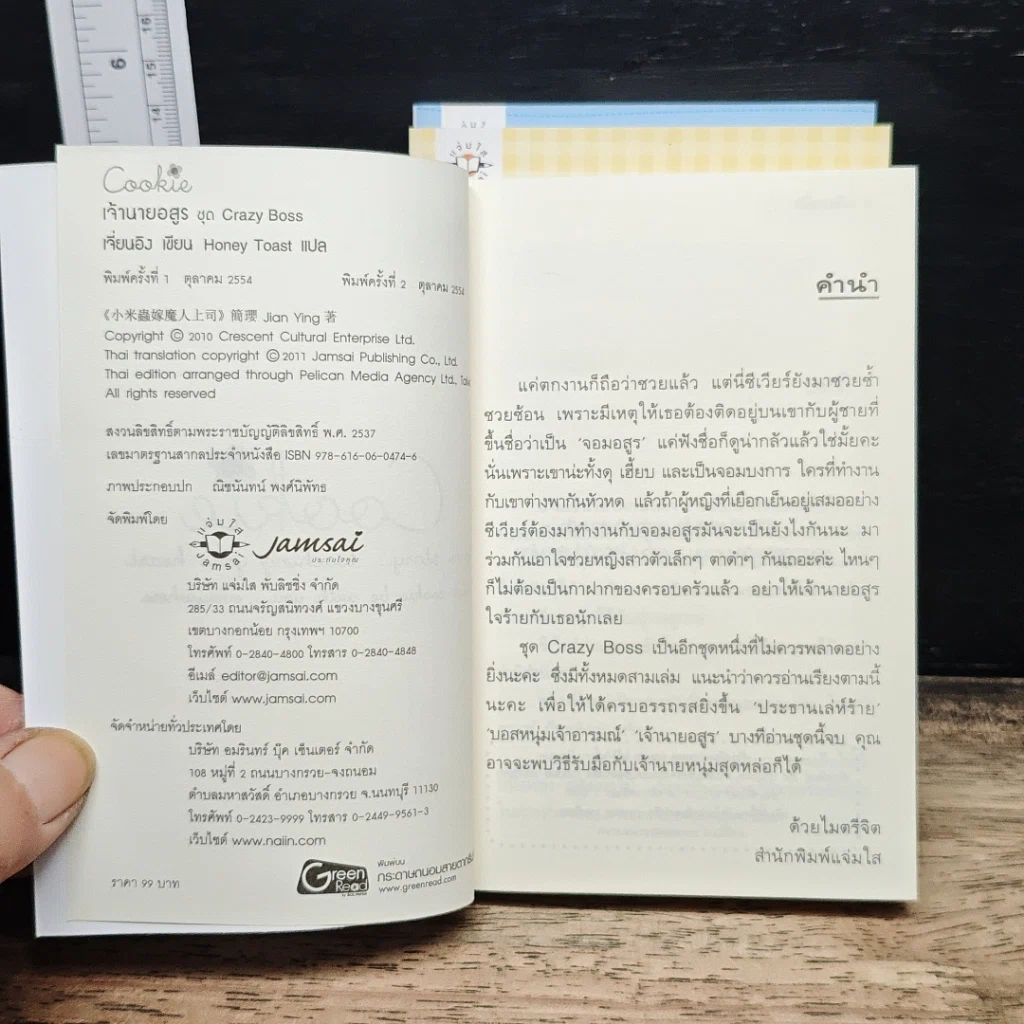 6
16
15
14
Cookie
เจ้านายอสูร ชุด Crazy Boss
เจี่ยนอิง เขียน Honey Toast แปล
พิมพ์ครั้งที่ 1 ตุลาคม 2554 พิมพ์ครั้งที่ 2 ตุลาคม 2554
《小米蟲嫁魔人上司》簡瓔 Jian Ying 著
Copyright © 2010 Crescent Cultural Enterprise Ltd.
Thai translation copyright © 2011 Jamsai Publishing Co., Ltd.
Thai edition arranged through Pelican Media Agency Ltd.,
All rights reserved
สงวนลิขสิทธิ์ตามพระราชบัญญัติลิขสิทธิ์ พ.ศ. 2537
เลขมาตรฐานสากลประจำหนังสือ ISBN 978-616-06-0474-6
ภาพประกอบปก ณิชนันทน์ พงศ์นิพัทธ
จัดพิมพ์โดย
แจ่มใส
Jamsai
Jamsai
ประทับใจคุณ
บริษัท แจ่มใส พับลิชชิ่ง จำกัด
285/33 ถนนจรัญสนิทวงศ์ แขวงบางขุนศรี
เขตบางกอกน้อย กรุงเทพฯ 10700
โทรศัพท์ 0-2840-4800 โทรสาร 0-2840-4848
อีเมล์ editor@jamsai.com
เว็บไซต์ www.jamsai.com
จัดจำหน่ายทั่วประเทศโดย
บริษัท อมรินทร์ บุ๊ค เซ็นเตอร์ จำกัด
108 หมู่ที่ 2 ถนนบางกรวย-จงถนอม
ตำบลมหาสวัสดิ์ อำเภอบางกรวย จ.นนทบุรี 11130
โทรศัพท์ 0-2423-9999 โทรสาร 0-2449-9561-3
เว็บไซต์ www.naiin.com
ราคา 99 บาท
Green
Read
พิมพ์บน
กระดาษถนอมสายตากรีน
www.greenread.com
คำนำ
แค่ตกงานก็ถือว่าซวยแล้ว แต่นี่ซีเวียร์ยังมาซวยซ้ำ
ซวยซ้อน เพราะมีเหตุให้เธอต้องติดอยู่บนเขากับผู้ชายที่
ขึ้นชื่อว่าเป็น ‘จอมอสูร’ แค่ฟังชื่อก็ดูน่ากลัวแล้วใช่มั้ยคะ
นั่นเพราะเขาน่ะทั้งดุ เฮี้ยบ และเป็นจอมบงการ ใครที่ทำงาน
กับเขาต่างพากันหัวหด แล้วถ้าผู้หญิงที่เยือกเย็นอยู่เสมออย่าง
ซีเวียร์ต้องมาทำงานกับจอมอสูรมันจะเป็นยังไงกันนะ มา
ร่วมกันเอาใจช่วยหญิงสาวตัวเล็กๆ ตาดำๆ กันเถอะค่ะ ไหนๆ
ก็ไม่ต้องเป็นกาฝากของครอบครัวแล้ว อย่าให้เจ้านายอสูร
ใจร้ายกับเธอนักเลย
ชุด Crazy Boss เป็นอีกชุดหนึ่งที่ไม่ควรพลาดอย่าง
ยิ่งนะคะ ซึ่งมีทั้งหมดสามเล่ม แนะนำว่าควรอ่านเรียงตามนี้
นะคะ เพื่อให้ได้ครบอรรถรสยิ่งขึ้น ‘ประธานเล่ห์ร้าย’
‘บอสหนุ่มเจ้าอารมณ์’ ‘เจ้านายอสูร’ บางทีอ่านชุดนี้จบ คุณ
อาจจะพบวิธีรับมือกับเจ้านายหนุ่มสุดหล่อก็ได้
ด้วยไมตรีจิต
สำนักพิมพ์แจ่มใส